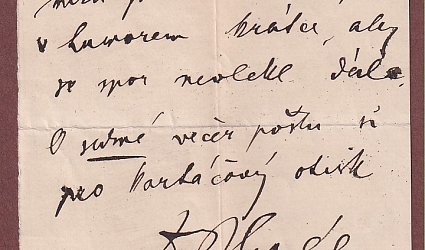 v humorem krátce, aby
se spor nevlekl dále.
O sedmé večer pošlu si
pro kartáčový otisk